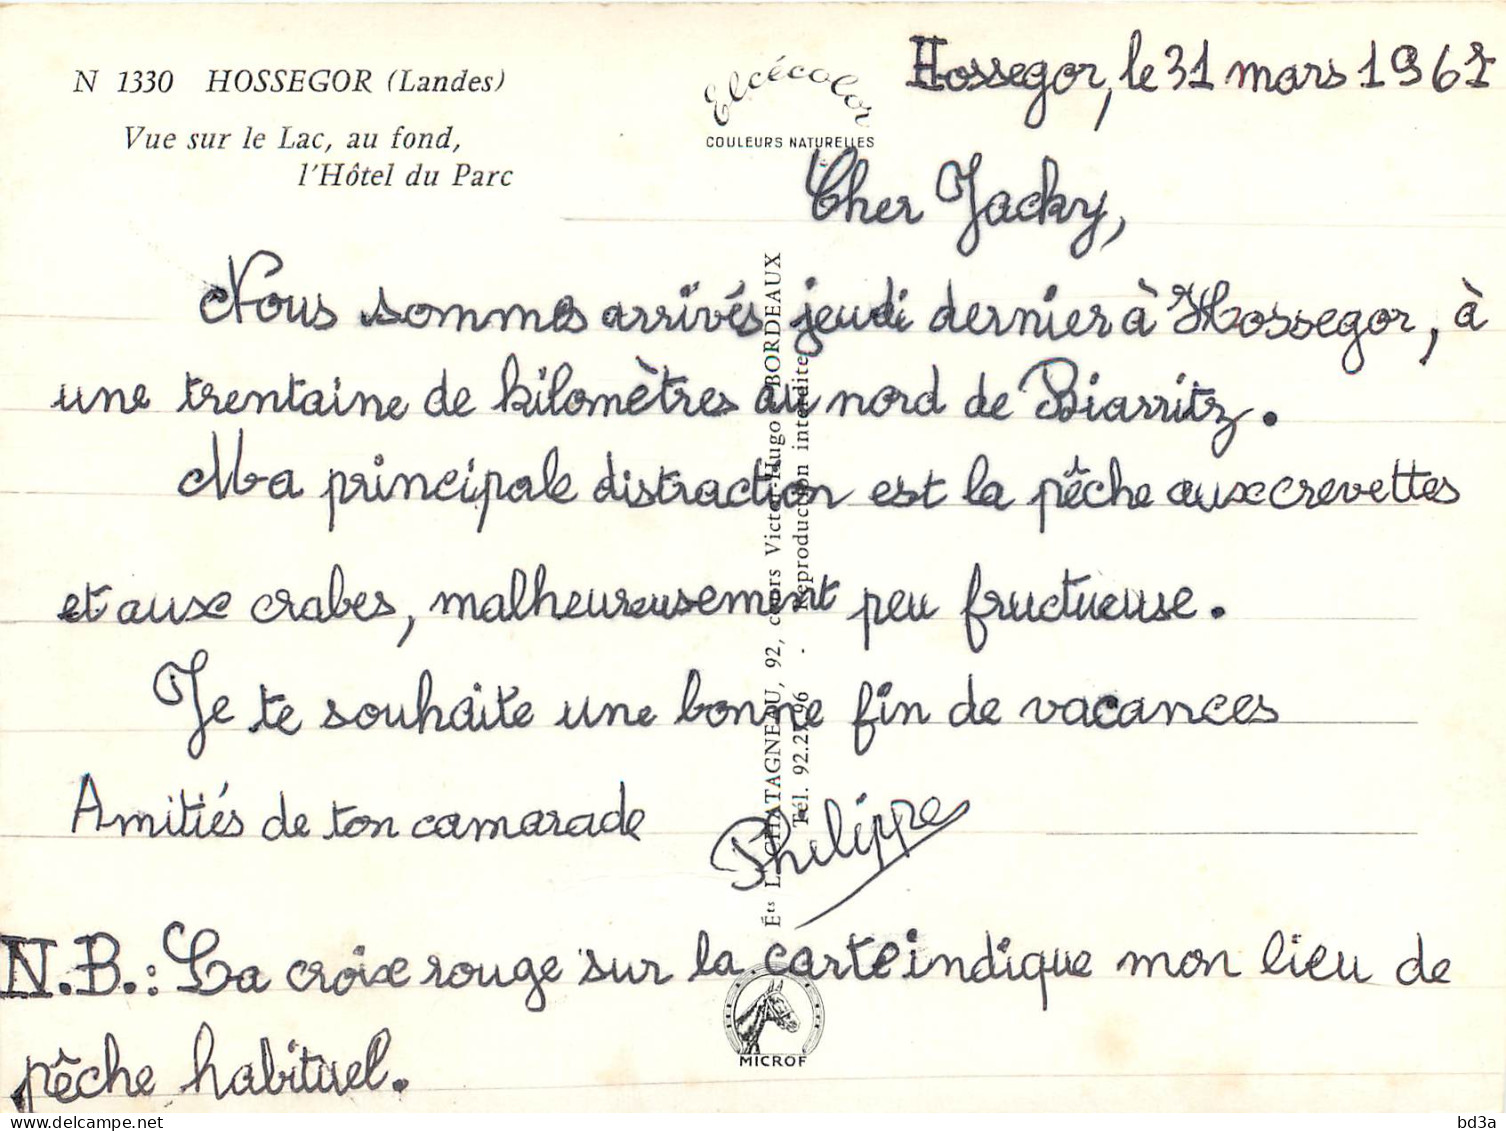 N 1330 HOSSEGOR (Landes)
Vue sur le Lac, au fond,
l'Hôtel du Parc
Elcécolor
COULEURS NATURELLES
Hossegor, le 31 mars 1967
Cher Jacky,
Nous sommes arrivés jeudi dernier à Hossegor, à
une trentaine de kilomètres au nord de Biarritz.
Ma principale distraction est la pêche aux crevettes
et aux crabes, malheureusement peu fructueuse.
Je te souhaite une bonne fin de vacances
Amitiés de ton camarade Philippe
N.B.: La croix rouge sur la carte indique mon lieu de
pêche habituel.
Éts L. CHATAGNEAU, 92, cours Victor-Hugo BORDEAUX
Tél. 92.27.96 - Reproduction interdite
MICROF
delcampe.net
bd3a